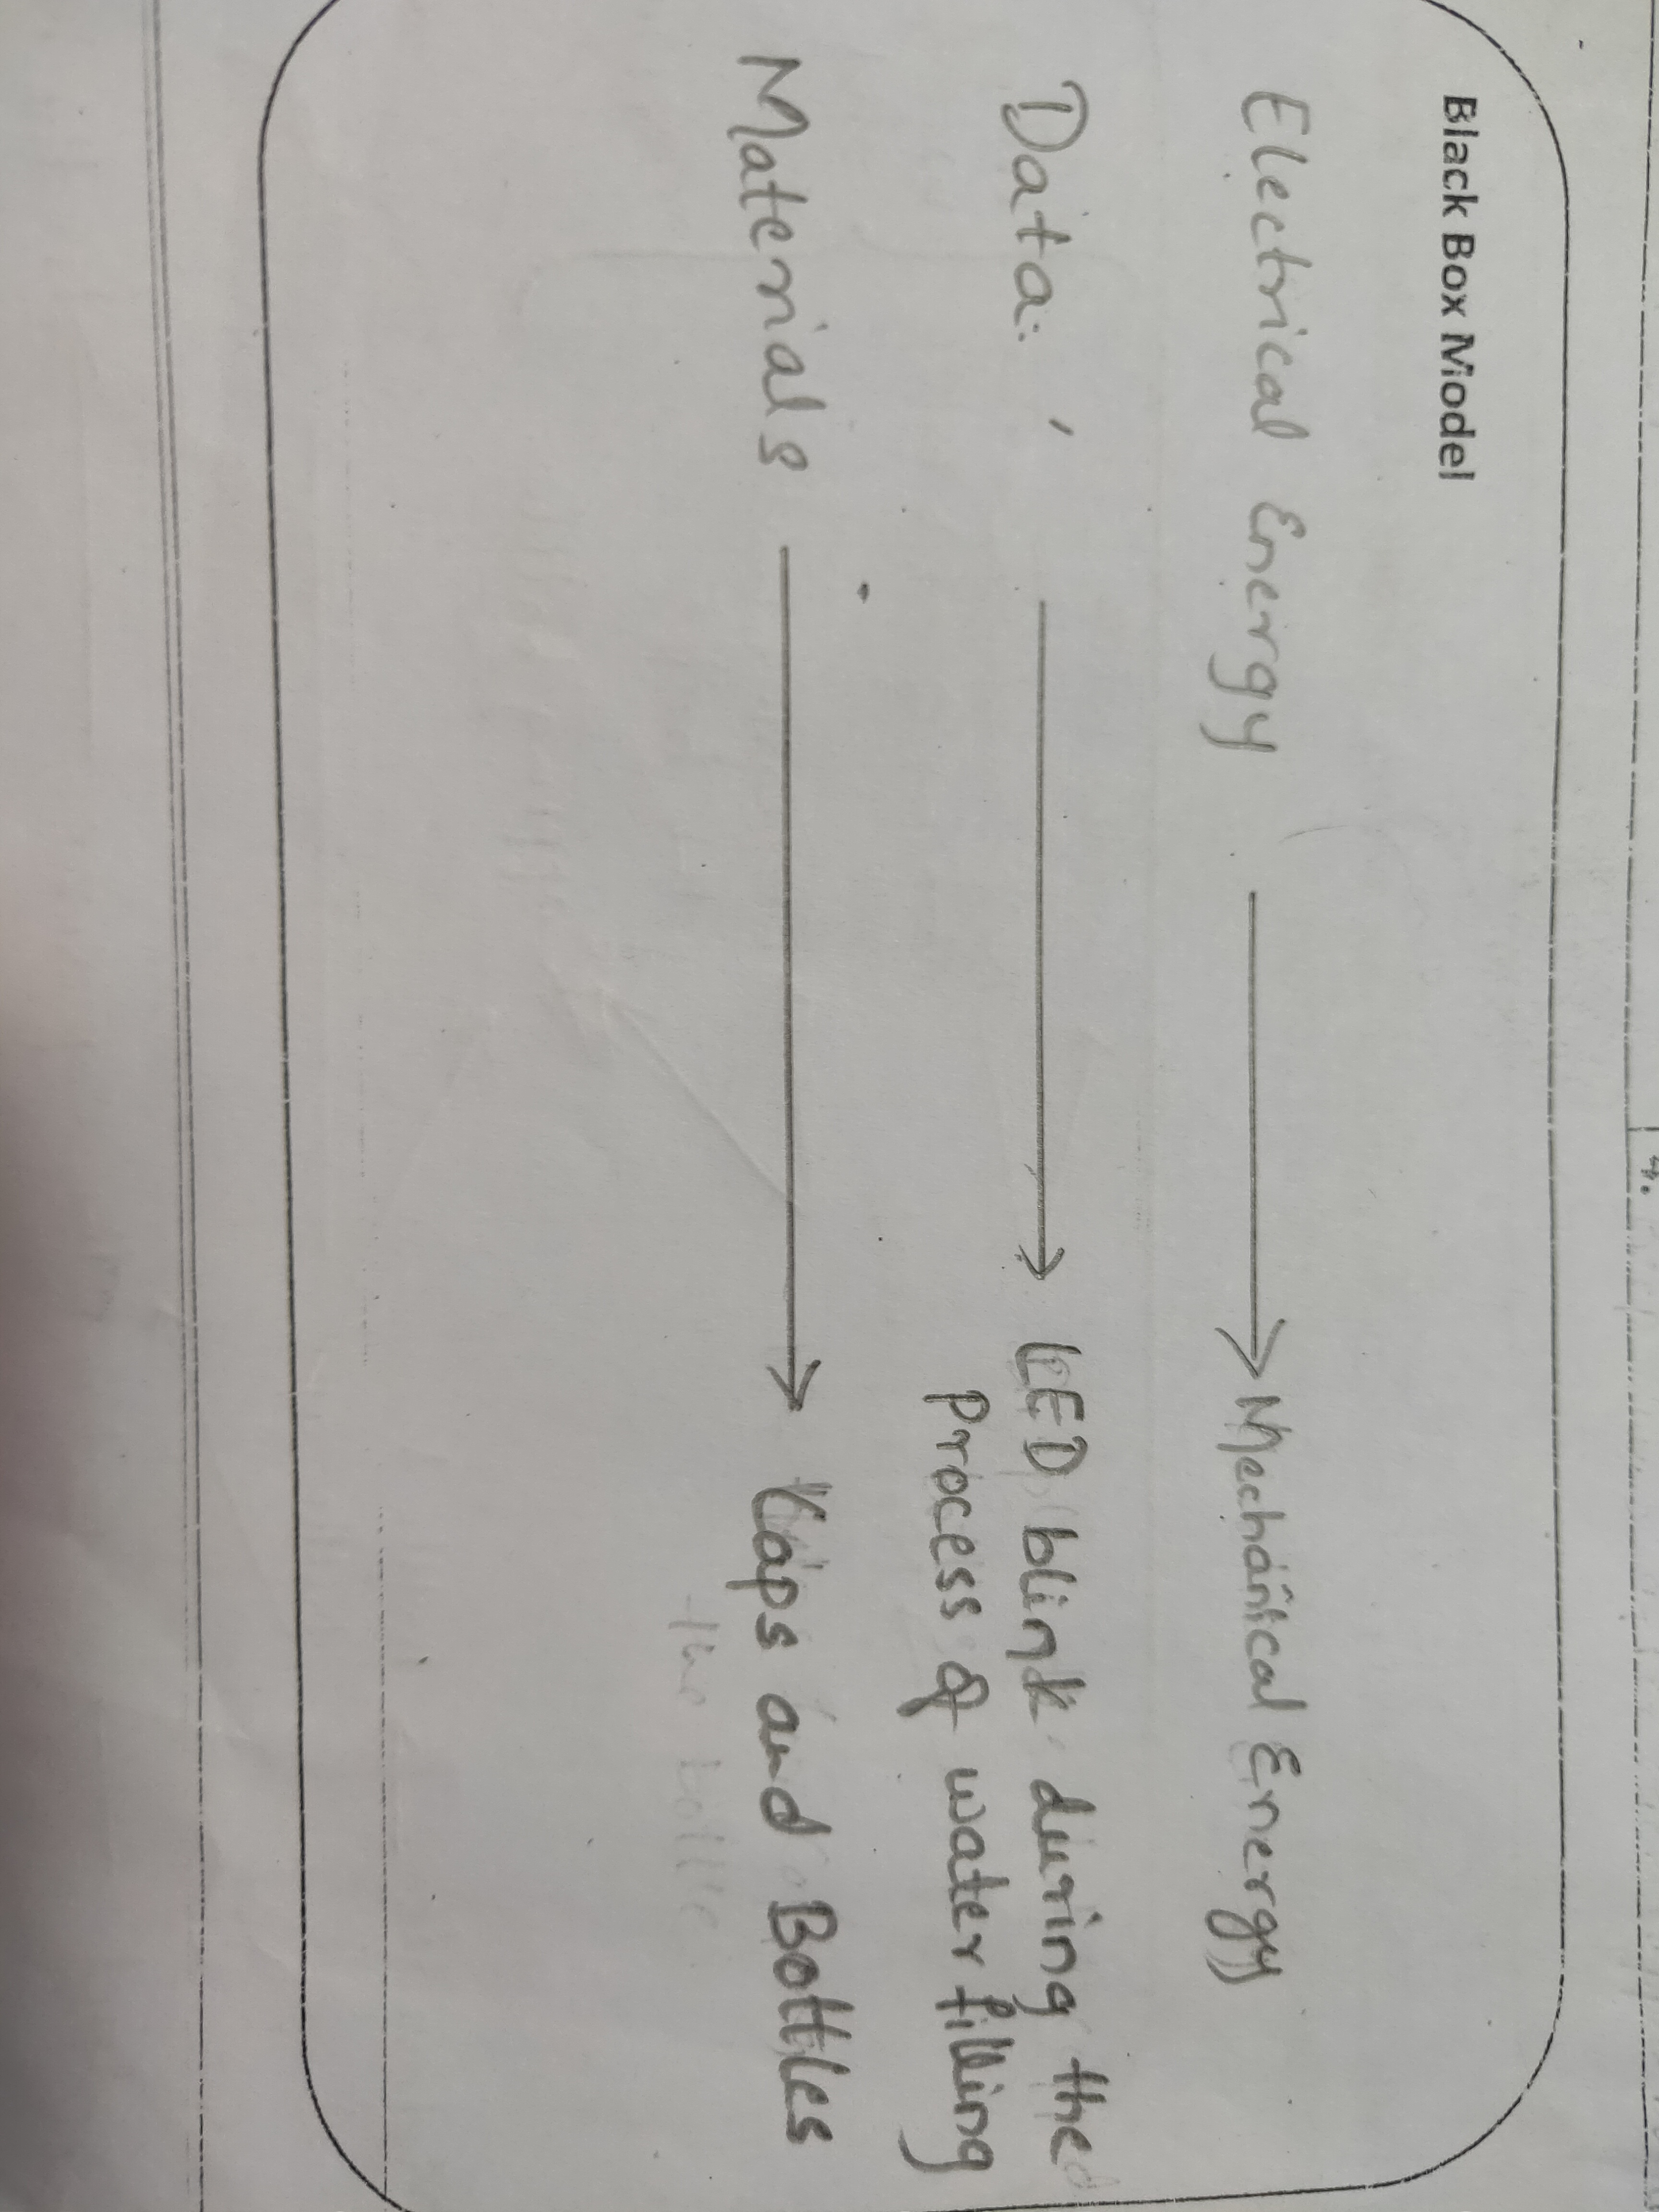 Black Box Model
Electrical Energy → Mechanical Energy
Data: → LED blink during the
process of water filling
Materials → Caps and Bottles
the bottle
4.